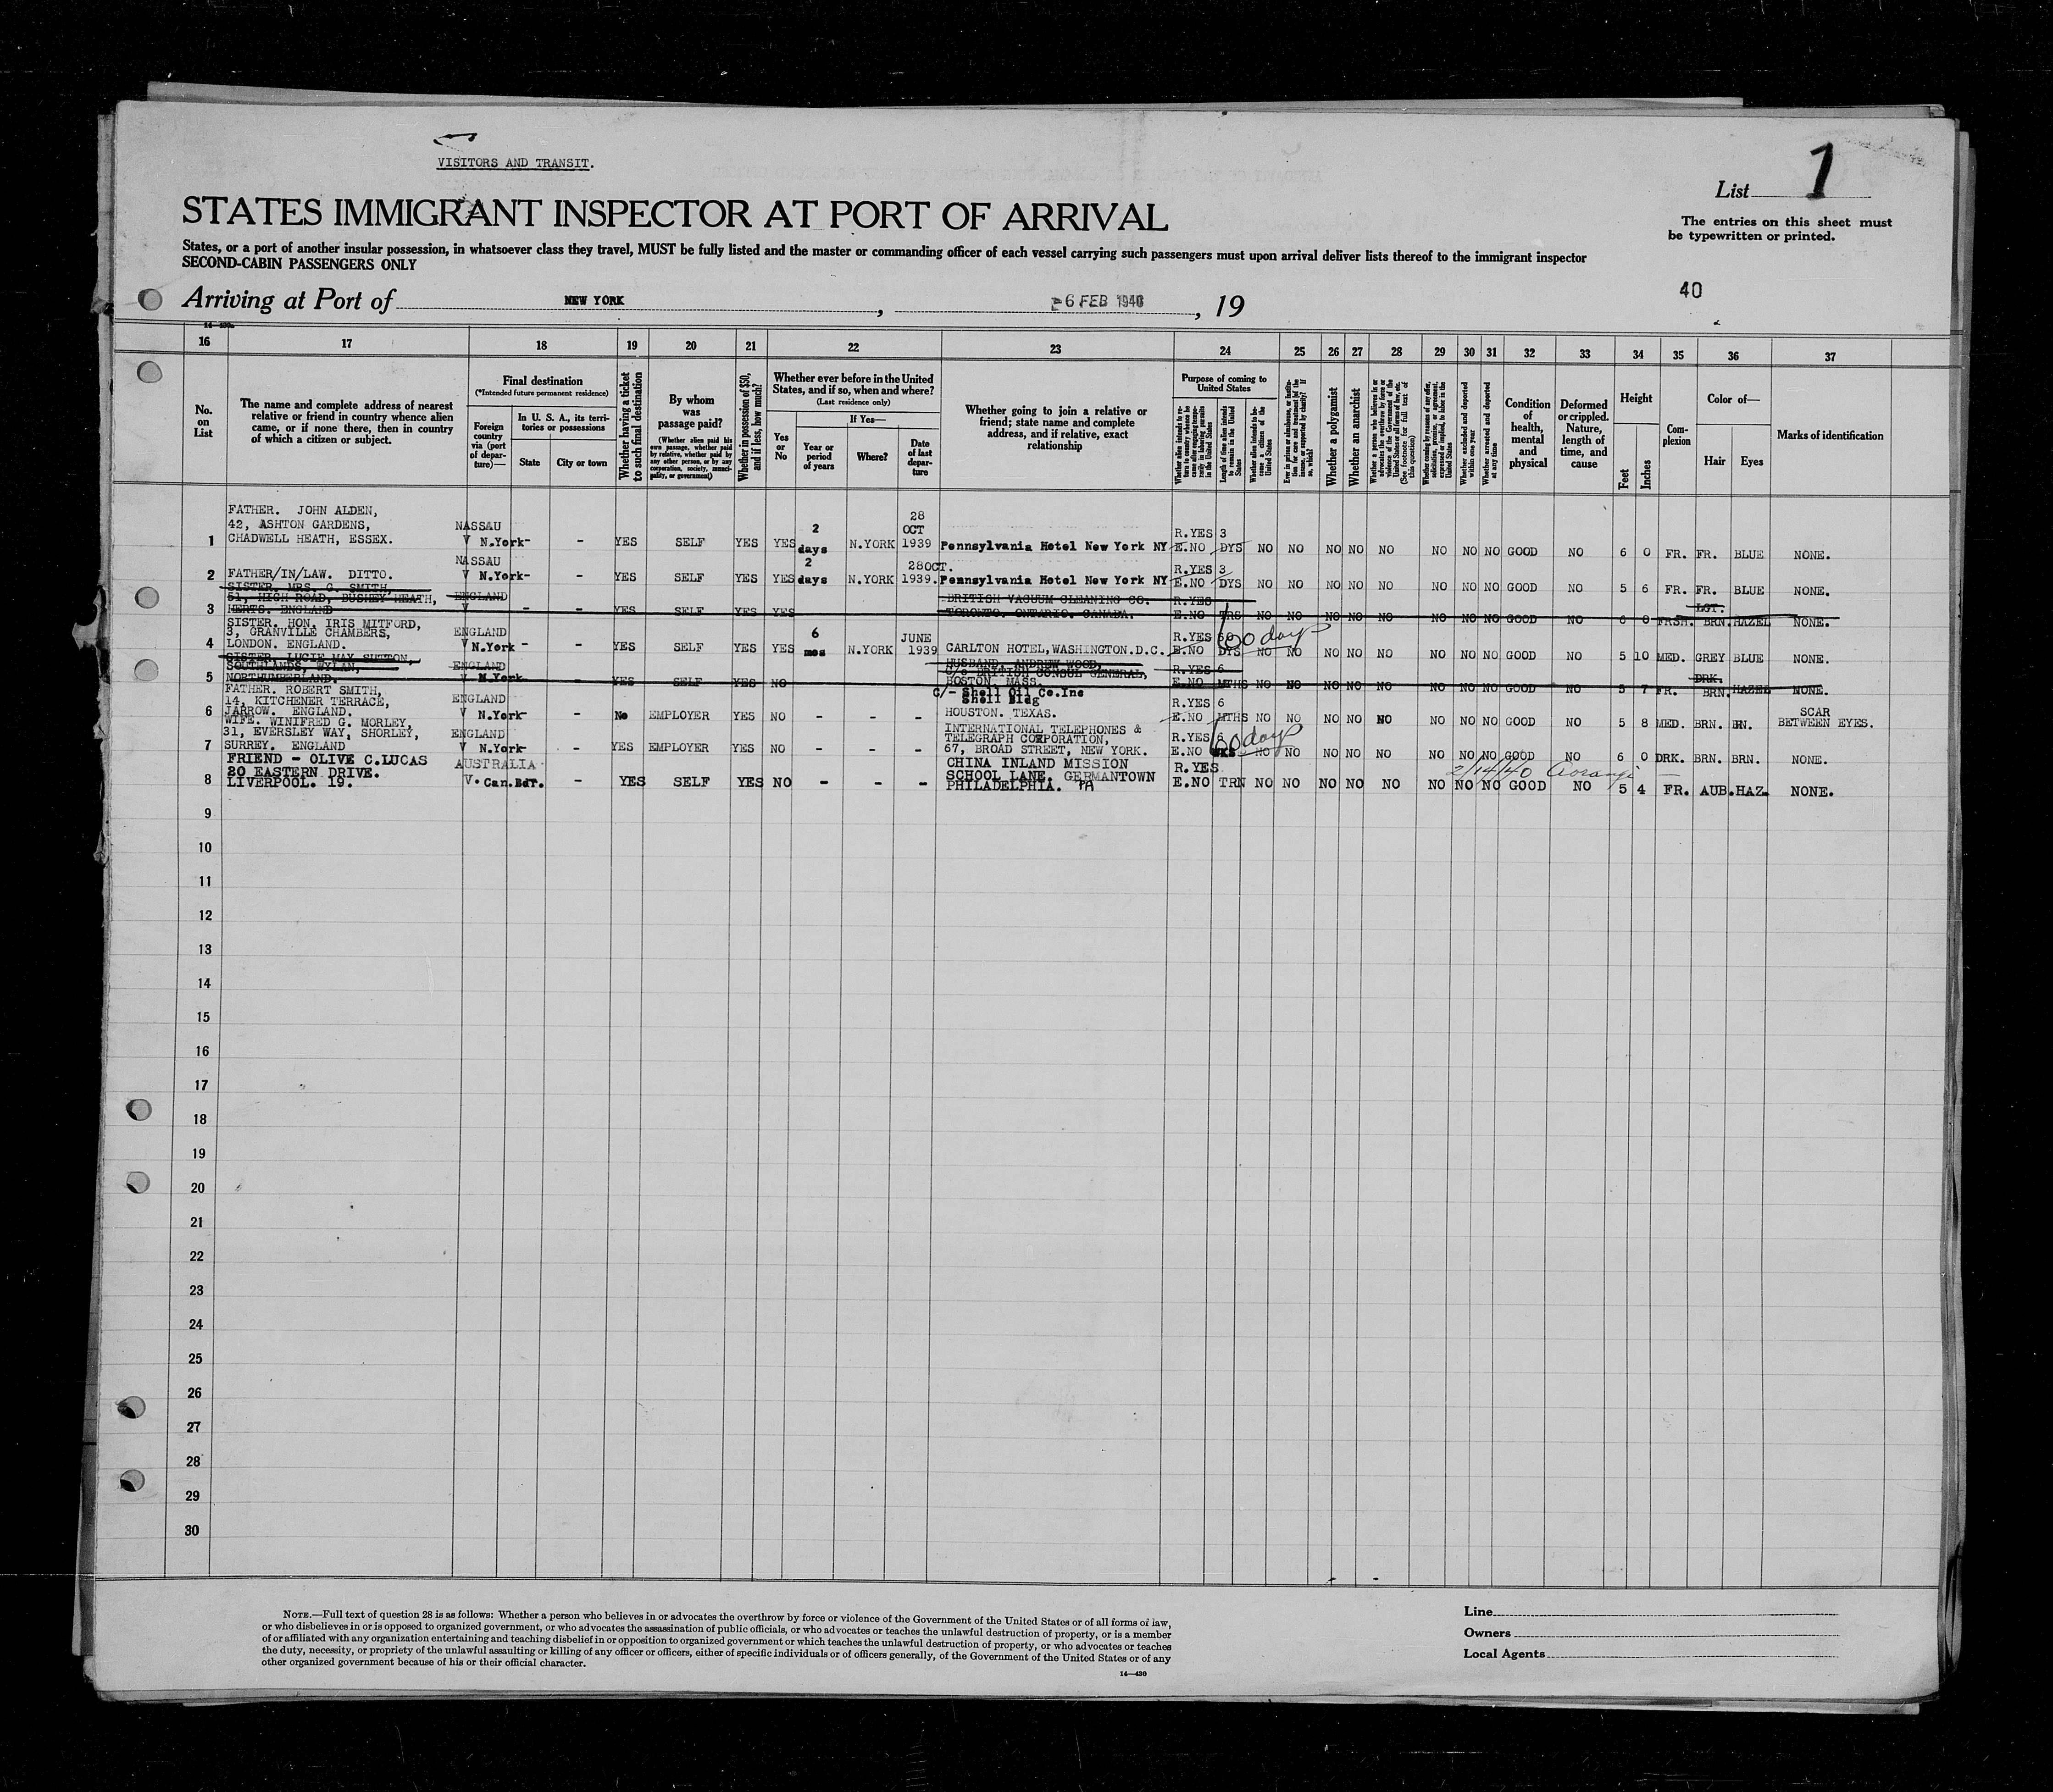 VISITORS AND TRANSIT.
List 1
STATES IMMIGRANT INSPECTOR AT PORT OF ARRIVAL
The entries on this sheet must
be typewritten or printed.
States, or a port of another insular possession, in whatsoever class they travel, MUST be fully listed and the master or commanding officer of each vessel carrying such passengers must upon arrival deliver lists thereof to the immigrant inspector
SECOND-CABIN PASSENGERS ONLY
Arriving at Port of NEW YORK, 6 FEB 1940, 19 40
16 17 18 19 20 21 22 23 24 25 26 27 28 29 30 31 32 33 34 35 36 37
No.
on
List
The name and complete address of nearest
relative or friend in country whence alien
came, or if none there, then in country
of which a citizen or subject.
Final destination
(*Intended future permanent residence)
Foreign
country
via (port
of depar-
ture)—
In U. S. A., its terri-
tories or possessions
State
City or town
Whether having a ticket
to such final destination
By whom
was
passage paid?
(Whether alien paid his
own passage, whether paid
by relative, whether paid by
any other person, or by any
corporation, society, munici-
pality, or government)
Whether in possession of $50,
and if less, how much?
Whether ever before in the United
States, and if so, when and where?
(Last residence only)
Yes
or
No
If Yes—
Year or
period
of years
Where?
Date
of last
depar-
ture
Whether going to join a relative or
friend; state name and complete
address, and if relative, exact
relationship
Purpose of coming to
United States
Length of time alien intends
to remain in the United
States
Whether alien intends to be-
come a citizen of the
United States
Whether a polygamist
Whether an anarchist
Whether excluded and deported
within one year
Whether arrested and deported
at any time
Condition
of
health,
mental
and
physical
Deformed
or crippled.
Nature,
length of
time, and
cause
Height
Feet
Inches
Com-
plexion
Color of—
Hair
Eyes
Marks of identification
FATHER. JOHN ALDEN,
42, ASHTON GARDENS,
CHADWELL HEATH, ESSEX.
1 NASSAU V N.York - - YES SELF YES YES 2 days N.YORK 28 OCT 1939 Pennsylvania Hotel New York NY R.YES E.NO 3 DYS NO NO NO NO NO NO NO NO GOOD NO 6 0 FR. FR. BLUE NONE.
2 FATHER/IN/LAW. DITTO. NASSAU V N.York - - YES SELF YES YES 2 days N.YORK 28OCT. 1939. Pennsylvania Hotel New York NY R.YES E.NO 3 DYS NO NO NO NO NO NO NO NO GOOD NO 5 6 FR. FR. BLUE NONE.
SISTER. MRS. G. SMITH,
51, HIGH ROAD, BUSHEY HEATH,
3 HERTS. ENGLAND ENGLAND V - - YES SELF YES YES BRITISH VACUUM CLEANING CO. TORONTO. ONTARIO. CANADA. R.YES E.NO NO NO NO NO NO NO NO NO GOOD NO 6 0 FRSH. LGT. BRN. HAZEL NONE.
SISTER. HON. IRIS MITFORD,
3, GRANVILLE CHAMBERS,
4 LONDON. ENGLAND. ENGLAND V N.York - - YES SELF YES YES 6 mos N.YORK JUNE 1939 CARLTON HOTEL, WASHINGTON.D.C. R.YES E.NO DYS 60 days NO NO NO NO NO NO NO NO GOOD NO 5 10 MED. GREY BLUE NONE.
SISTER. LUCIE MAY SUTTON,
SOUTHLANDS, WYLAN,
5 NORTHUMBERLAND. ENGLAND V N.York - YES SELF YES NO HUSBAND. ANDREW WOOD, C/O BRITISH CONSUL GENERAL, BOSTON. MASS. R.YES E.NO 6 MTHS NO NO NO NO NO NO NO NO GOOD NO 5 7 FR. DRK. BRN. HAZEL NONE.
FATHER. ROBERT SMITH,
14, KITCHENER TERRACE,
6 JARROW. ENGLAND. ENGLAND V N.York - - No EMPLOYER YES NO - - - C/- Shell Oil Co.Inc Shell Bldg HOUSTON. TEXAS. R.YES E.NO 6 MTHS NO NO NO NO NO NO NO NO GOOD NO 5 8 MED. BRN. BRN. SCAR BETWEEN EYES.
WIFE. WINIFRED G. MORLEY,
31, EVERSLEY WAY, SHORLEY,
7 SURREY. ENGLAND ENGLAND V N.York - - YES EMPLOYER YES NO - - - INTERNATIONAL TELEPHONES & TELEGRAPH CORPORATION, 67, BROAD STREET, NEW YORK. R.YES E.NO 6 WKS 60 days NO NO NO NO NO NO NO NO GOOD NO 6 0 DRK. BRN. BRN. NONE.
FRIEND - OLIVE C.LUCAS
20 EASTERN DRIVE.
8 LIVERPOOL. 19. AUSTRALIA V. Can.Bdr. - YES SELF YES NO - - - CHINA INLAND MISSION SCHOOL LANE. GERMANTOWN PHILADELPHIA. PA R.YES E.NO TRN NO NO NO NO NO NO NO NO GOOD NO 5 4 FR. AUB. HAZ. NONE.
2/14/40 Aorangi
9
10
11
12
13
14
15
16
17
18
19
20
21
22
23
24
25
26
27
28
29
30
NOTE.—Full text of question 28 is as follows: Whether a person who believes in or advocates the overthrow by force or violence of the Government of the United States or of all forms of law,
or who disbelieves in or is opposed to organized government, or who advocates the assassination of public officials, or who advocates or teaches the unlawful destruction of property, or is a member
of or affiliated with any organization entertaining and teaching disbelief in or opposition to organized government or which teaches the unlawful destruction of property, or who advocates or teaches
the duty, necessity, or propriety of the unlawful assaulting or killing of any officer or officers, either of specific individuals or of officers generally, of the Government of the United States or of any
other organized government because of his or their official character.
14—430
Line
Owners
Local Agents